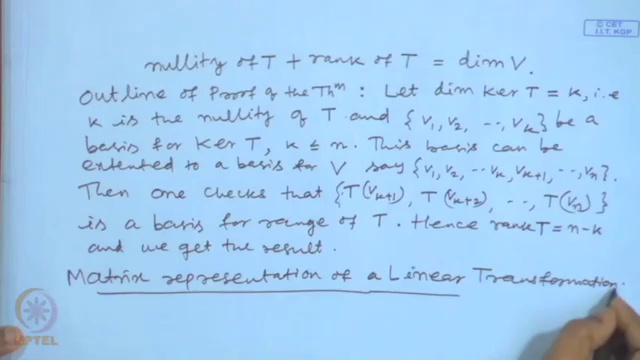 © CET
I.I.T. KGP
nullity of T + rank of T = dim V.
Outline of Proof of the Thᵐ : Let dim ker T = k, i.e
k is the nullity of T and {v₁, v₂, ⋯, vₖ} be a
basis for Ker T, k ≤ n. This basis can be
extented to a basis for V say {v₁, v₂, ⋯ vₖ, vₖ₊₁, ⋯, vₙ}.
Then one checks that {T(vₖ₊₁), T(vₖ₊₂), ⋯, T(vₙ)}
is a basis for range of T. Hence rank T = n-k
and we get the result.
Matrix representation of a Linear Transformation.
NPTEL